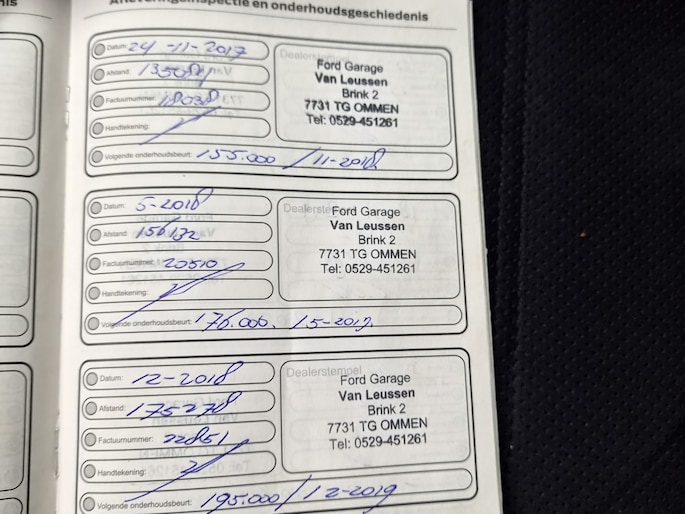 Afleveringsinspectie en onderhoudsgeschiedenis
Datum: 24-11-2017
Afstand:
Factuurnummer: 18038
Handtekening:
Volgende onderhoudsbeurt: 155.000 / 11-2018
Dealerstempel
Ford Garage
Van Leussen
Brink 2
7731 TG OMMEN
Tel: 0529-451261
Datum: 5-2018
Afstand: 156132
Factuurnummer: 20510
Handtekening:
Volgende onderhoudsbeurt: 176.000. / 5-2019
Dealerstempel
Ford Garage
Van Leussen
Brink 2
7731 TG OMMEN
Tel: 0529-451261
Datum: 12-2018
Afstand: 175278
Factuurnummer: 22851
Handtekening:
Volgende onderhoudsbeurt: 195.000 / 12-2019
Dealerstempel
Ford Garage
Van Leussen
Brink 2
7731 TG OMMEN
Tel: 0529-451261